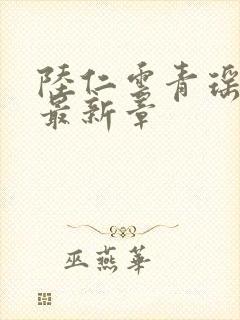 陸仁雲青瑶
最新章
巫燕華